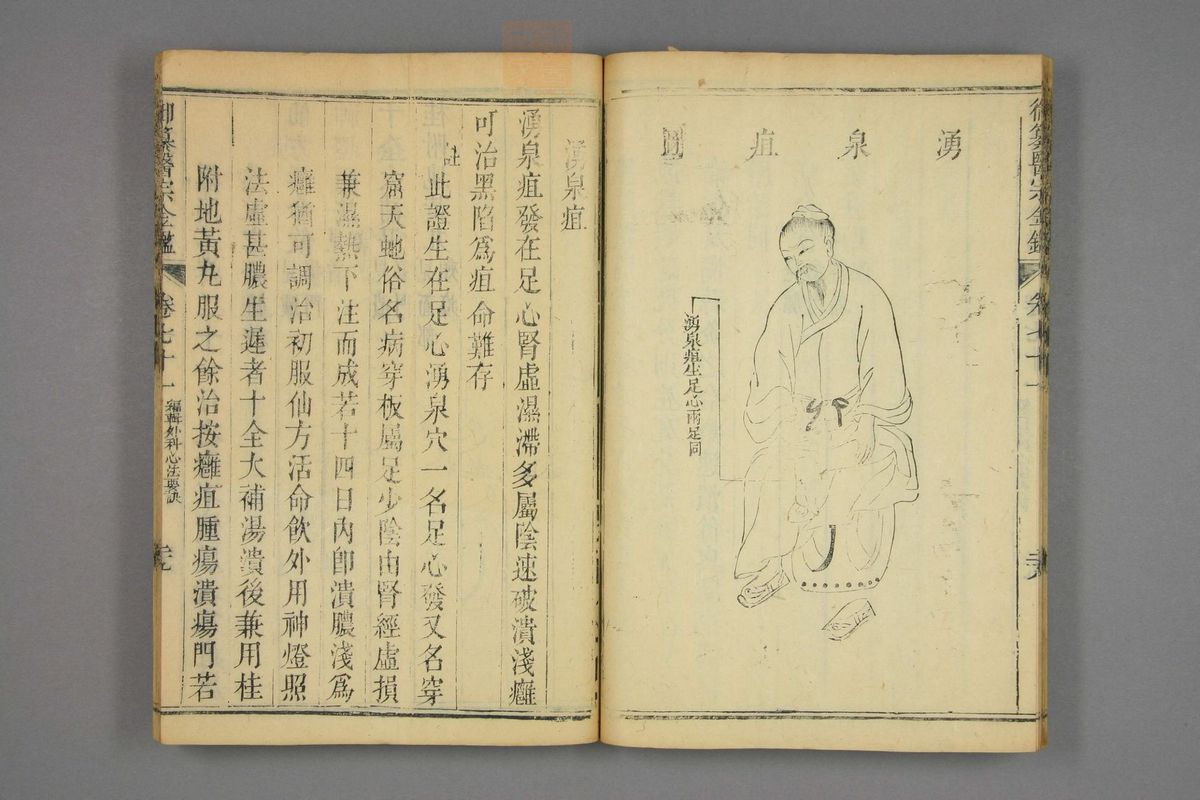 御纂醫宗金鑑 卷七十一 天
湧泉疽圖
湧泉疽生足心兩足同
湧泉疽
湧泉疽發在足心腎虛濕滯多屬陰速破潰淺癰
可治黑陷爲疽命難存
註此證生在足心湧泉穴一名足心發又名穿
窟天蛇俗名病穿板屬足少陰由腎經虛損
兼濕熱下注而成若十四日內卽潰膿淺爲
癰猶可調治初服仙方活命飲外用神燈照
法虛甚膿生遲者十全大補湯潰後兼用桂
附地黃丸服之餘治按癰疽腫瘍潰瘍門若
御纂醫宗金鑑 卷七十一 編輯外科心法要訣 元